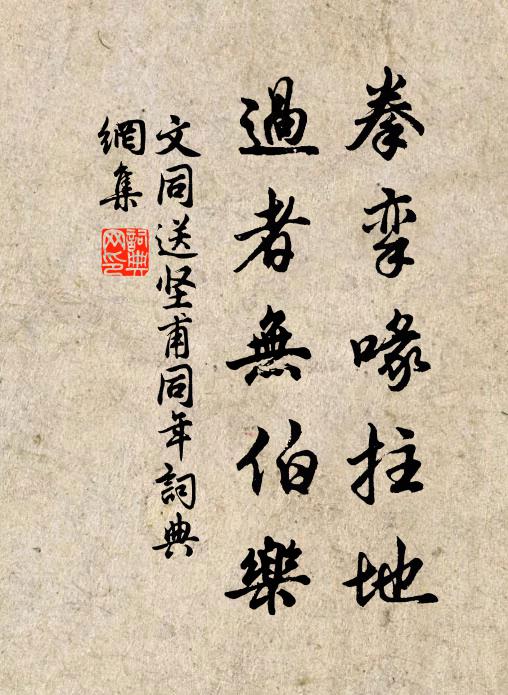 拳挛喙拄地
過者無伯樂
文同送坚甫同年詞典
網集
詞典網印